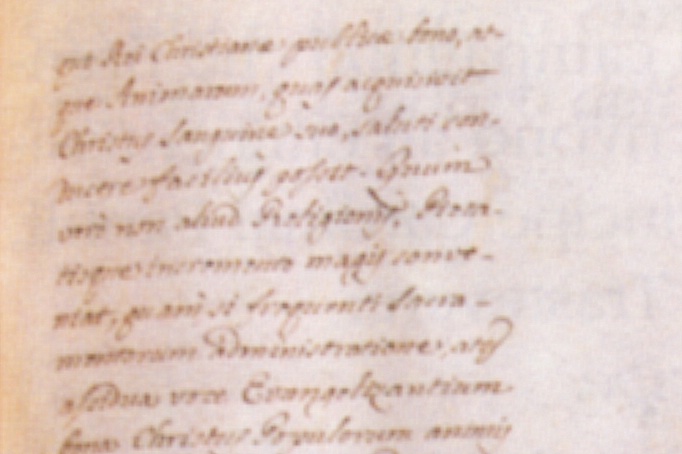 que Rei Christianæ publicæ bono, at-
que Animarum, quas acquisivit
Christus Sanguine suo, saluti con-
facilius possit. Quum
vero non aliud Religionis, Pieta-
tisque incremento magis conve-
niat, quam si frequenti Sacra-
mentorum administratione, atq
assidua voce Evangelizantium
Christus Populorum animis